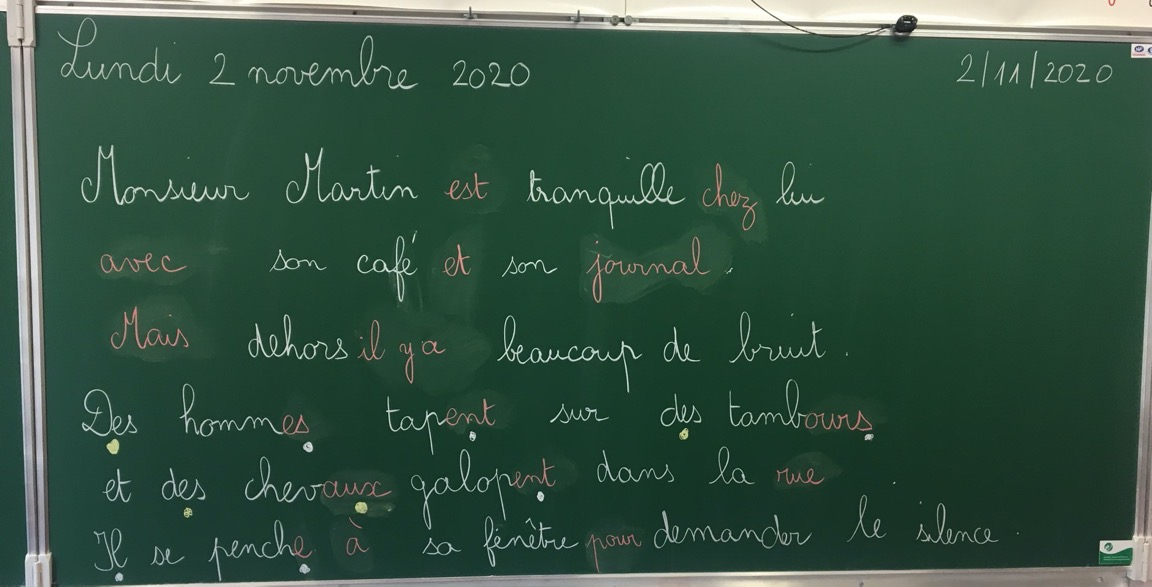 Lundi 2 novembre 2020 2/11/2020
Monsieur Martin est tranquille chez lui
avec son café et son journal.
Mais dehors il y a beaucoup de bruit.
Des hommes tapent sur des tambours
et des chevaux galopent dans la rue
Il se penche à sa fênêtre pour demander le silence.